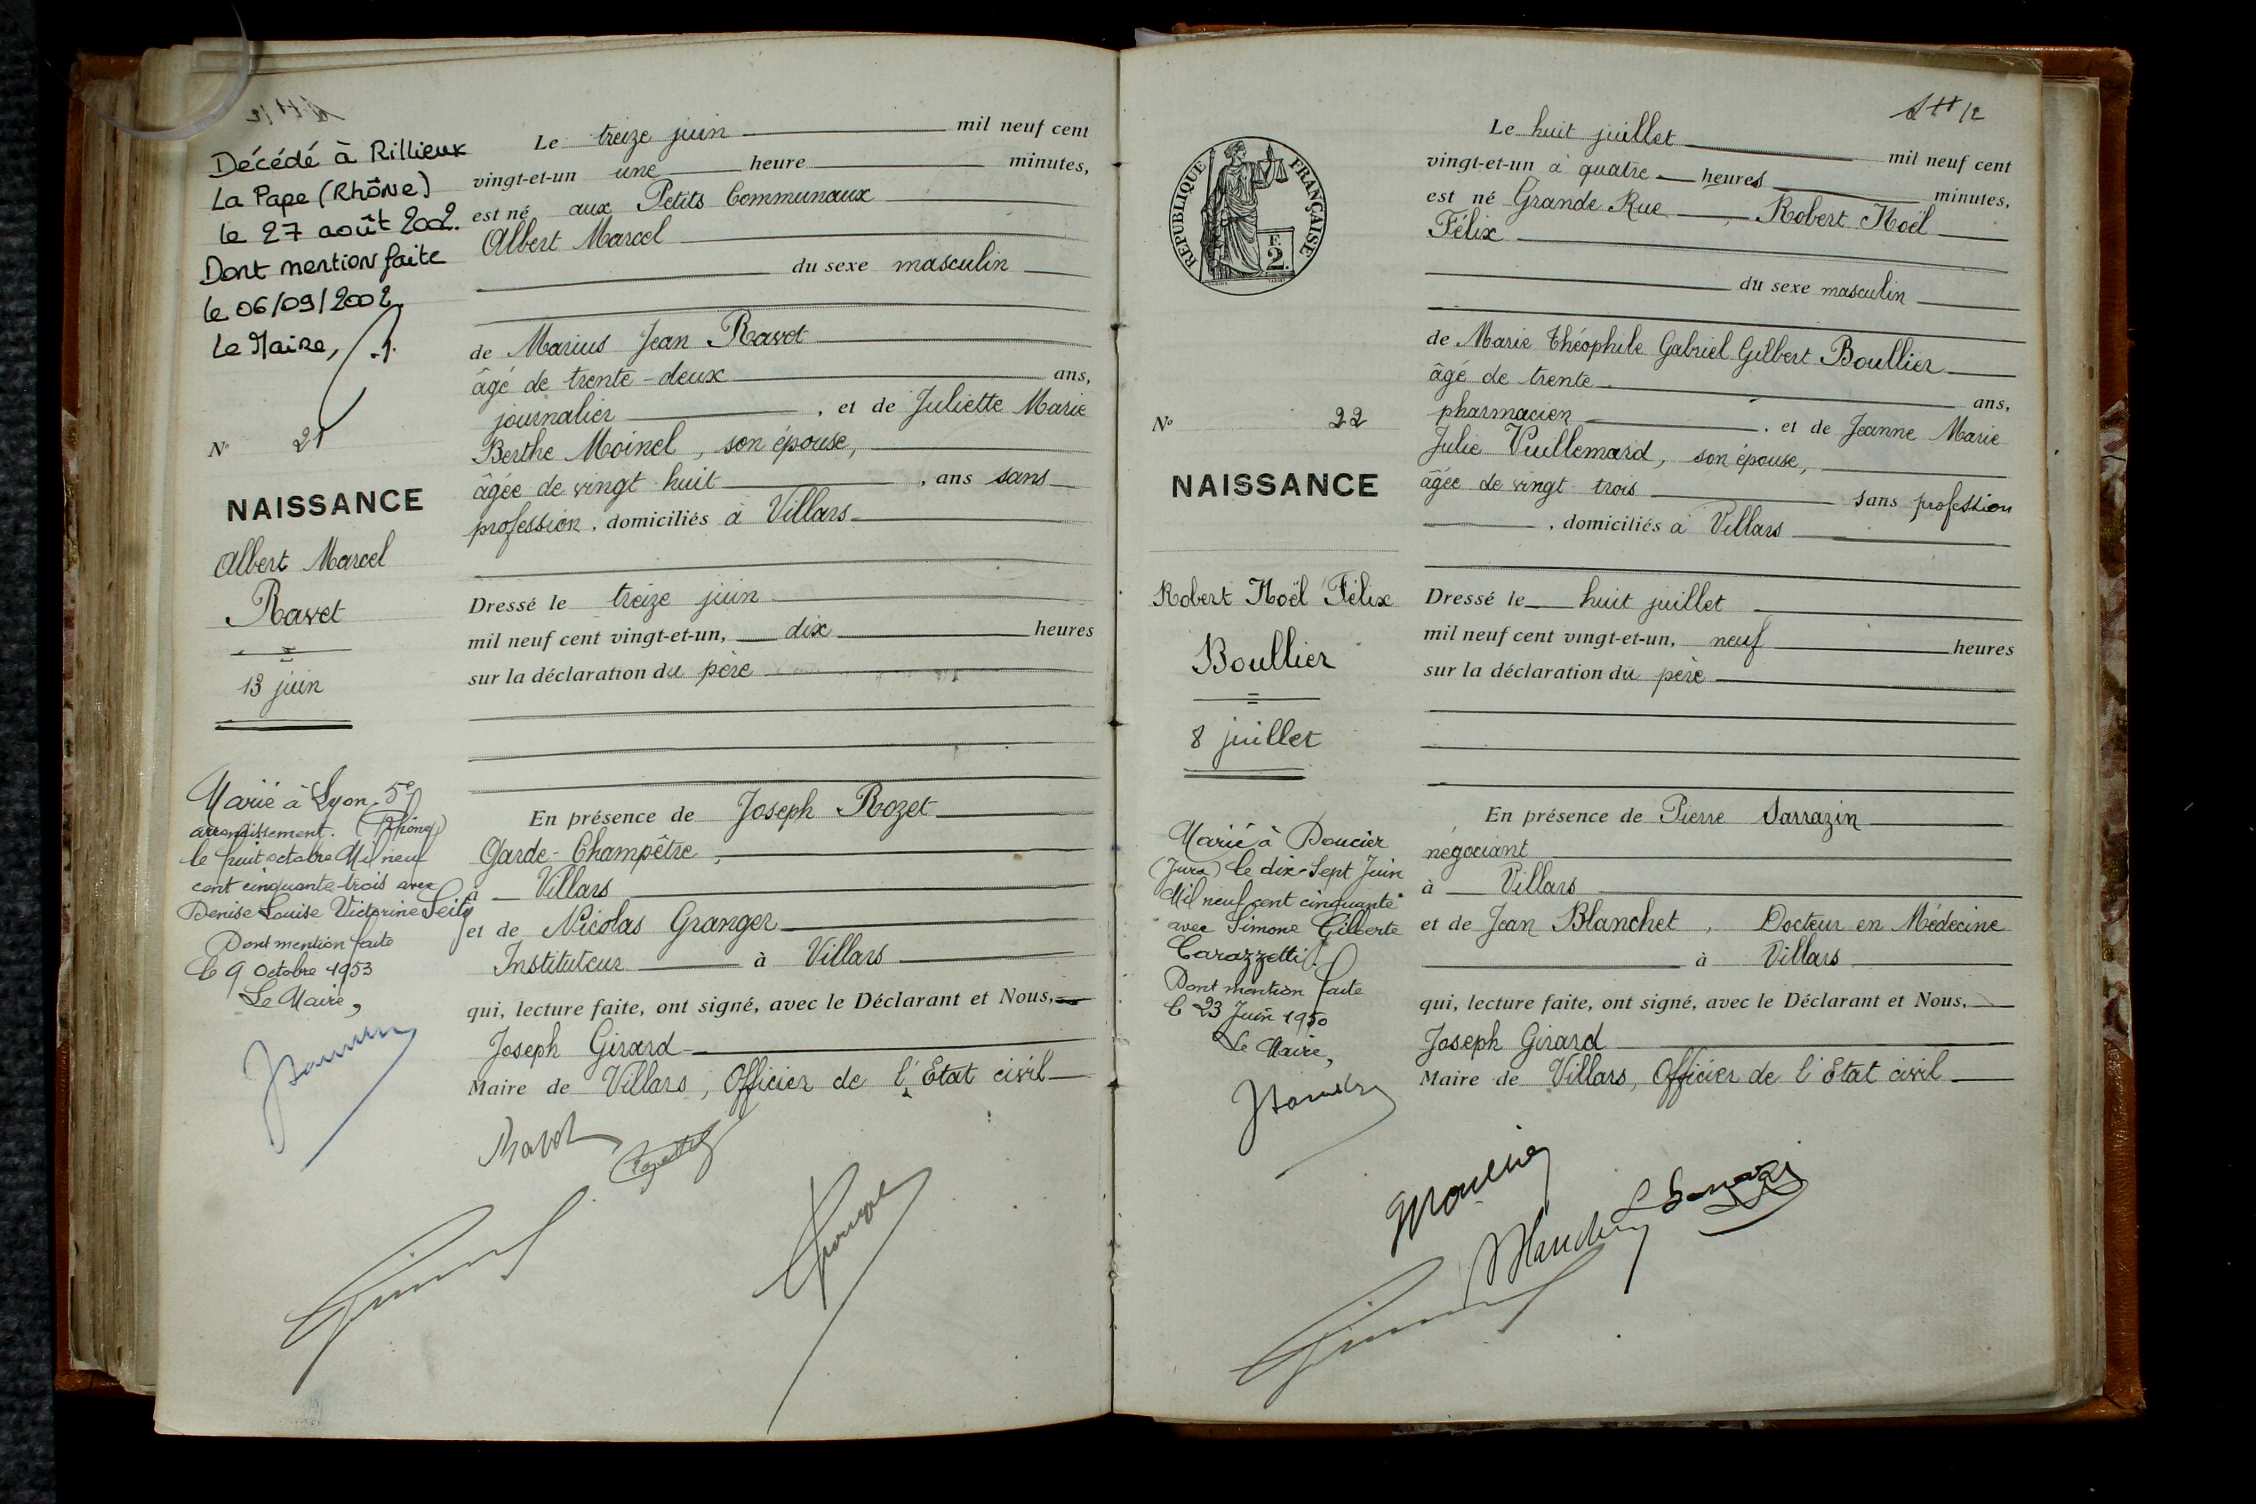 Décédé à Rillieux
La Pape (Rhône)
le 27 août 2002.
Dont mention faite
le 06/09/2002
Le Maire,
N° 21
NAISSANCE
Albert Marcel
Ravet
13 juin
Marié à Lyon 5e
arrondissement. (Rhône)
le huit octobre Mil neuf
cent cinquante-trois avec
Denise Louise Victorine
Dont mention faite
le 9 Octobre 1953
Le Maire,
Le treize juin mil neuf cent
vingt-et-un une heure minutes,
est né aux Petits Communaux
Albert Marcel
du sexe masculin
de Marius Jean Ravet
âgé de trente-deux ans,
journalier, et de Juliette Marie
Berthe Moinel, son épouse,
âgée de vingt huit, ans sans
profession, domiciliés à Villars
Dressé le treize juin
mil neuf cent vingt-et-un, dix heures
sur la déclaration du père
En présence de Joseph Rozet
Garde-Champêtre,
à Villars
et de Nicolas Granger
Instituteur à Villars
qui, lecture faite, ont signé, avec le Déclarant et Nous,
Joseph Girard
Maire de Villars, Officier de l'Etat civil
Ravet
RÉPUBLIQUE FRANÇAISE
F.
2.
N° 22
NAISSANCE
Robert Noël Félix
Boullier
8 juillet
Marié à Doucier
(Jura) le dix-sept Juin
Mil neuf cent cinquante
avec Simone Gilberte
Carazzetti.
Dont mention faite
le 23 Juin 1950
Le Maire,
Le huit juillet mil neuf cent
vingt-et-un à quatre heures minutes,
est né Grande Rue, Robert Noël
Félix
du sexe masculin
de Marie Théophile Gabriel Gilbert Boullier
âgé de trente ans,
pharmacien, et de Jeanne Marie
Julie Vuillemard, son épouse,
âgée de vingt trois sans profession
, domiciliés à Villars
Dressé le huit juillet
mil neuf cent vingt-et-un, neuf heures
sur la déclaration du père
En présence de Pierre Sarrazin
négociant
à Villars
et de Jean Blanchet, Docteur en Médecine
à Villars
qui, lecture faite, ont signé, avec le Déclarant et Nous,
Joseph Girard
Maire de Villars, Officier de l'Etat civil